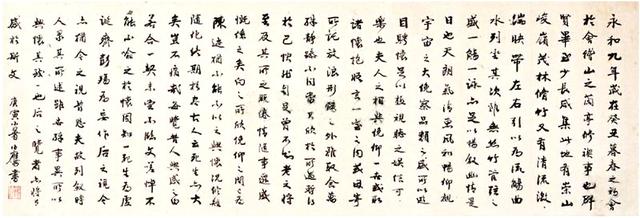 永和九年歲在癸丑暮春之初會
於會稽山之蘭亭修禊事也群
賢畢至少長咸集此地有崇山
峻嶺茂林脩竹又有清流激
湍映帶左右引以為流觴曲
水列坐其次雖無絲竹管弦之
盛一觴一詠亦足以暢敘幽情是
日也天朗氣清惠風和暢仰觀
宇宙之大俯察品類之盛所以遊
目騁懷足以極視聽之娛信可
樂也夫人之相與俯仰一世或取
諸懷抱晤言一室之內或因寄
所託放浪形骸之外雖取舍萬
殊靜躁不同當其欣於所遇暫得
於己快然自足不知老之將
至及其所之既倦情隨事遷感
慨係之矣向之所欣俛仰之間為
陳迹猶不能不以之興懷況脩短
隨化終期於盡古人云死生亦大
矣豈不痛哉每覽昔人興感之由
若合一契未嘗不臨文嗟悼不
能不喻之於懷固知一死生為虛
誕齊彭殤為妄作後之視今
亦猶今之視昔悲夫故列敘時
人錄其所述雖世殊事異所以
興懷其致一也後之覽者亦將有
感於斯文 庚寅小暑 書